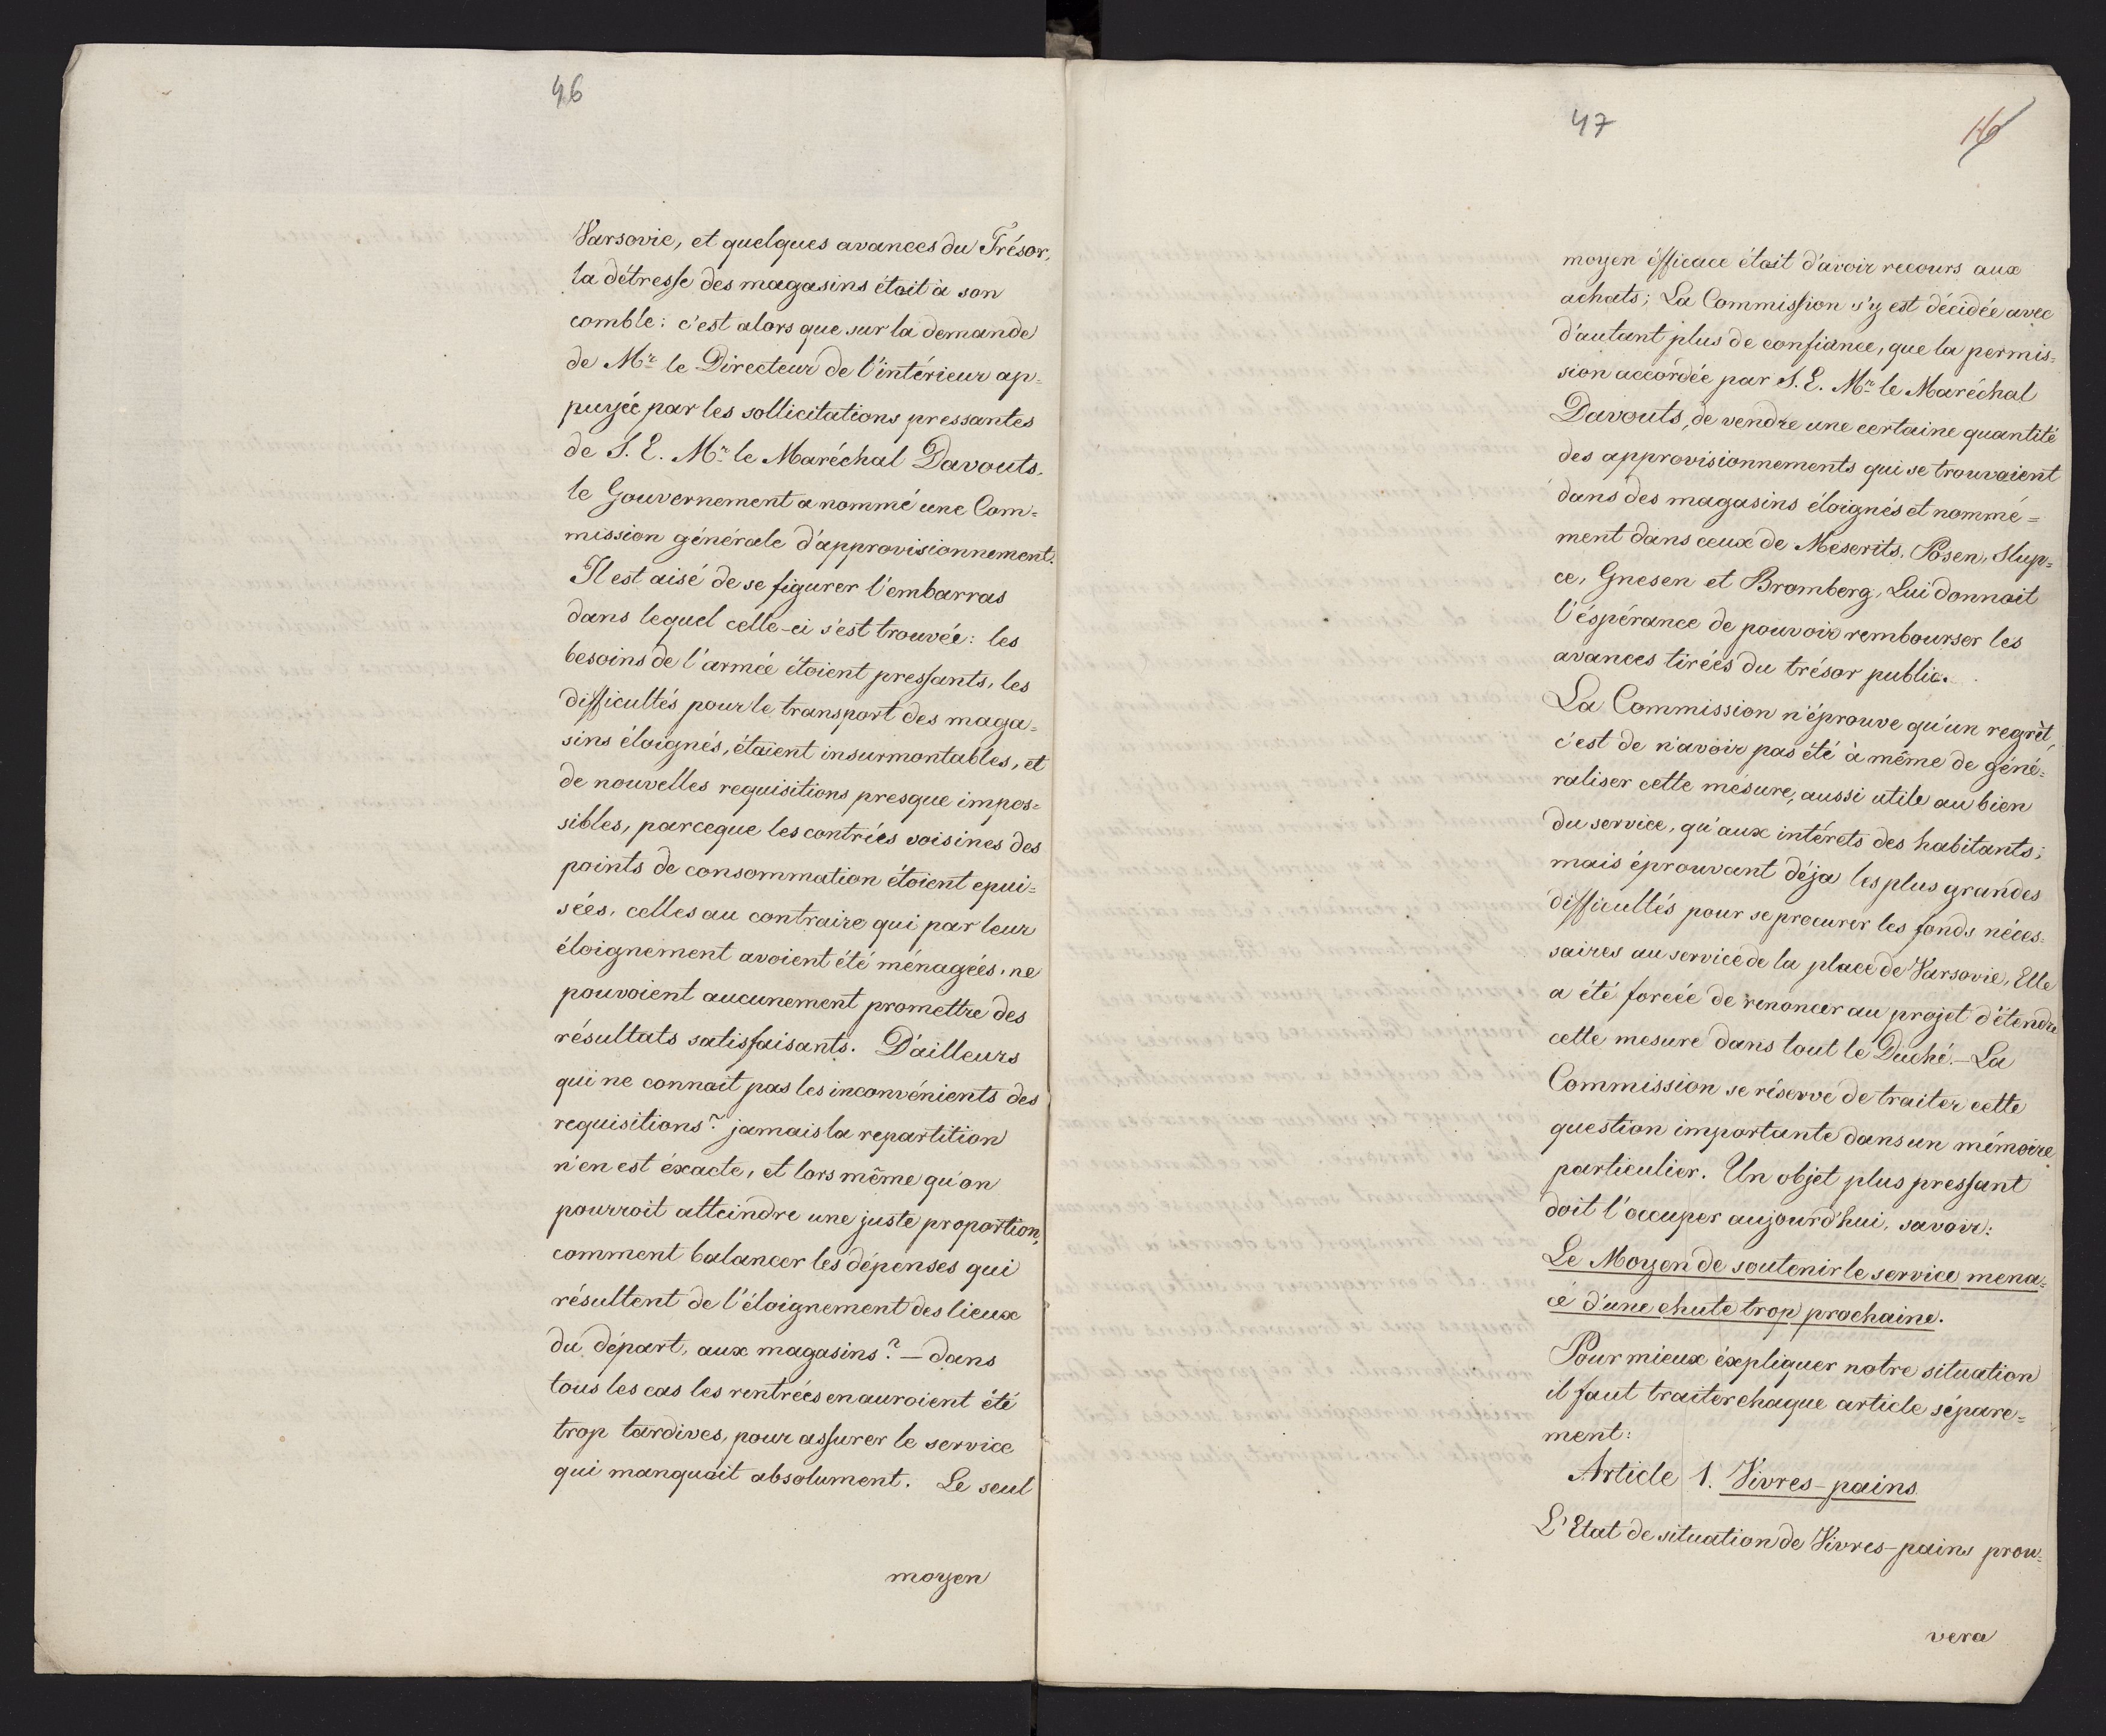 46
Varsovie, et quelques avances du Trésor,
la détresse des magasins étoit à son
comble: c'est alors que sur la demande
de Mr. le Directeur de l'intérieur ap=
puyée par les sollicitations pressantes
de S. E. Mr. le Maréchal Davouts,
le Gouvernement a nommé une Com=
mission générale d'approvisionnement.
Il est aisé de se figurer l'embarras
dans lequel celle-ci s'est trouvée: les
besoins de l'armée étoient pressants, les
difficultés pour le transport des maga=
sins éloignés, étaient insurmontables, et
de nouvelles requisitions presque impos=
sibles, parceque les contrées voisines des
points de consommation étoient epui=
sées, celles au contraire qui par leur
éloignement avoient été ménagées, ne
pouvoient aucunement promettre des
résultats satisfaisants. D'ailleurs
qui ne connait pas les inconvénients des
requisitions? jamais la repartition
n'en est éxacte, et lors même qu'on
pourroit atteindre une juste proportion,
comment balancer les dépenses qui
résultent de l'éloignement des lieux
du départ, aux magasins? — dans
tous les cas les rentrées en auroient été
trop tardives, pour assurer le service
qui manquait absolument. Le seul
moyen
47
16
moyen éfficace étoit d'avoir recours aux
achats; La Commission s'y est décidée avec
d'autant plus de confiance, que la permis=
sion accordée par S. E. Mr. le Maréchal
Davouts, de vendre une certaine quantité
des approvisionnements qui se trouvaient
dans des magasins éloignés et nommé=
ment dans ceux de Meserits, Posen, Slup=
ce, Gnesen et Bromberg, Lui donnoit
l'éspérance de pouvoir rembourser les
avances tirées du trésor public.
La Commission n'éprouve qu'un regrèt,
c'est de n'avoir pas été à même de géné=
raliser cette mésure, aussi utile au bien
du service, qu'aux intérets des habitants;
mais éprouvant déja les plus grandes
difficultés pour se procurer les fonds néces=
saires au service de la place de Varsovie, Elle
a été forcée de renoncer au projet d'étendre
cette mesure dans tout le Duché. — La
Commission se réserve de traiter cette
question importante dans un mémoire
particulier. Un objet plus pressant
doit l'occuper aujourd'hui, savoir:
Le Moyen de soutenir le service mena=
cé d'une chute trop prochaine.
Pour mieux éxpliquer notre situation
il faut traiter chaque article sépare=
ment:
Article 1. Vivres-pains
L'Etat de situation de Vivres-pains prou=
vera